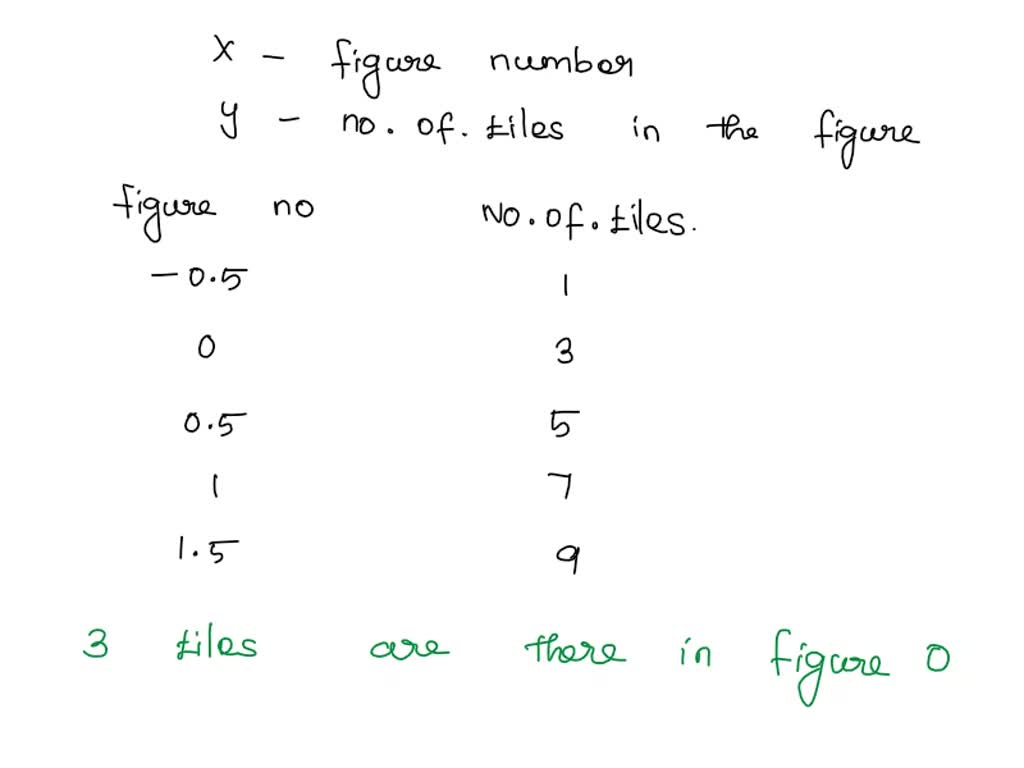 x - figure number
y - no. of. tiles in the figure
figure no No. of. tiles.
-0.5 1
0 3
0.5 5
1 7
1.5 9
3 tiles are there in figure 0